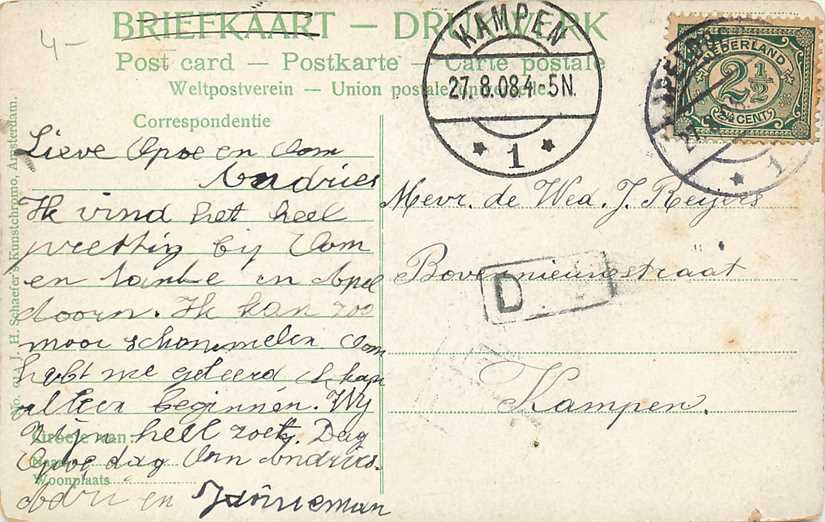 4-
BRIEFKAART — DRUKWERK
Post card — Postkarte — Carte postale
Weltpostverein — Union postale
Correspondentie
Lieve Opoe en Oom
Andries
Ik vind het heel
prettig bij Oom
en tante in Apel
doorn. Ik kan zoo
mooi schommelen Oom
hebt me geleerd ik kan
alleen beginnen. Wij
zijn heel zoet. Dag
Opoe dag Oom Andries.
Adri en
Groete van:
Woonplaats
J. H. Schaefer's Kunstchromo, Amsterdam.
KAMPEN
27.8.08 4-5N.
1
NEDERLAND
2½
2½ CENT
27
1
Mevr. de Wed. J. Reijers
Bovennieuwstraat
D
Kampen.